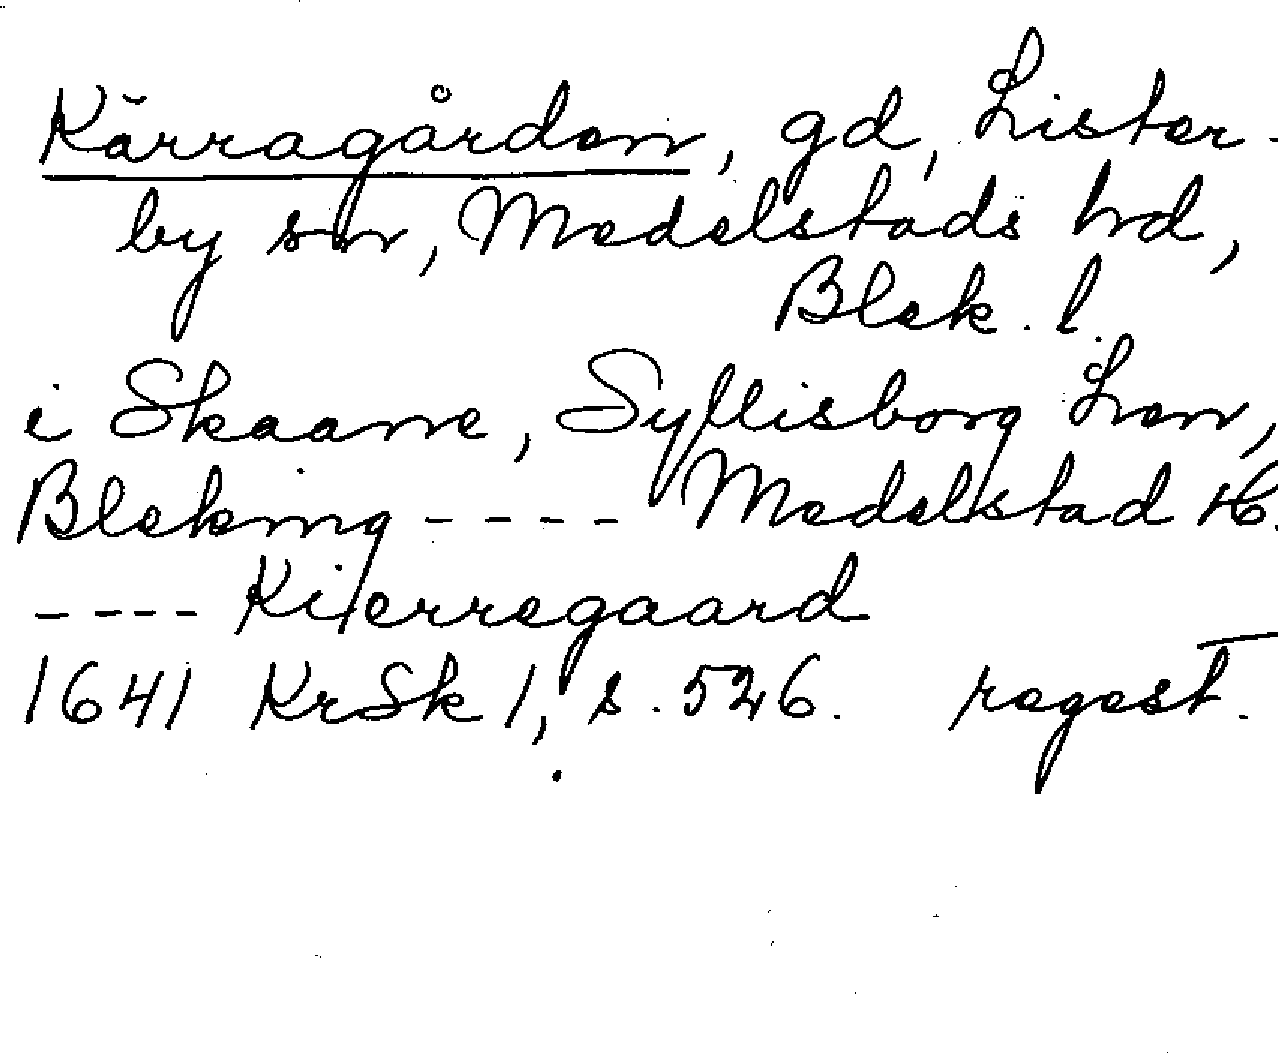 Kärragården, gd, Lister-
by sn, Medelstads hd,
Blek. l.
i Skaane, Syllisborg Len,
Bleking - - - - Medelstad H.
- - - - Kierregaard
1641 KrSk 1, s. 526. regest.